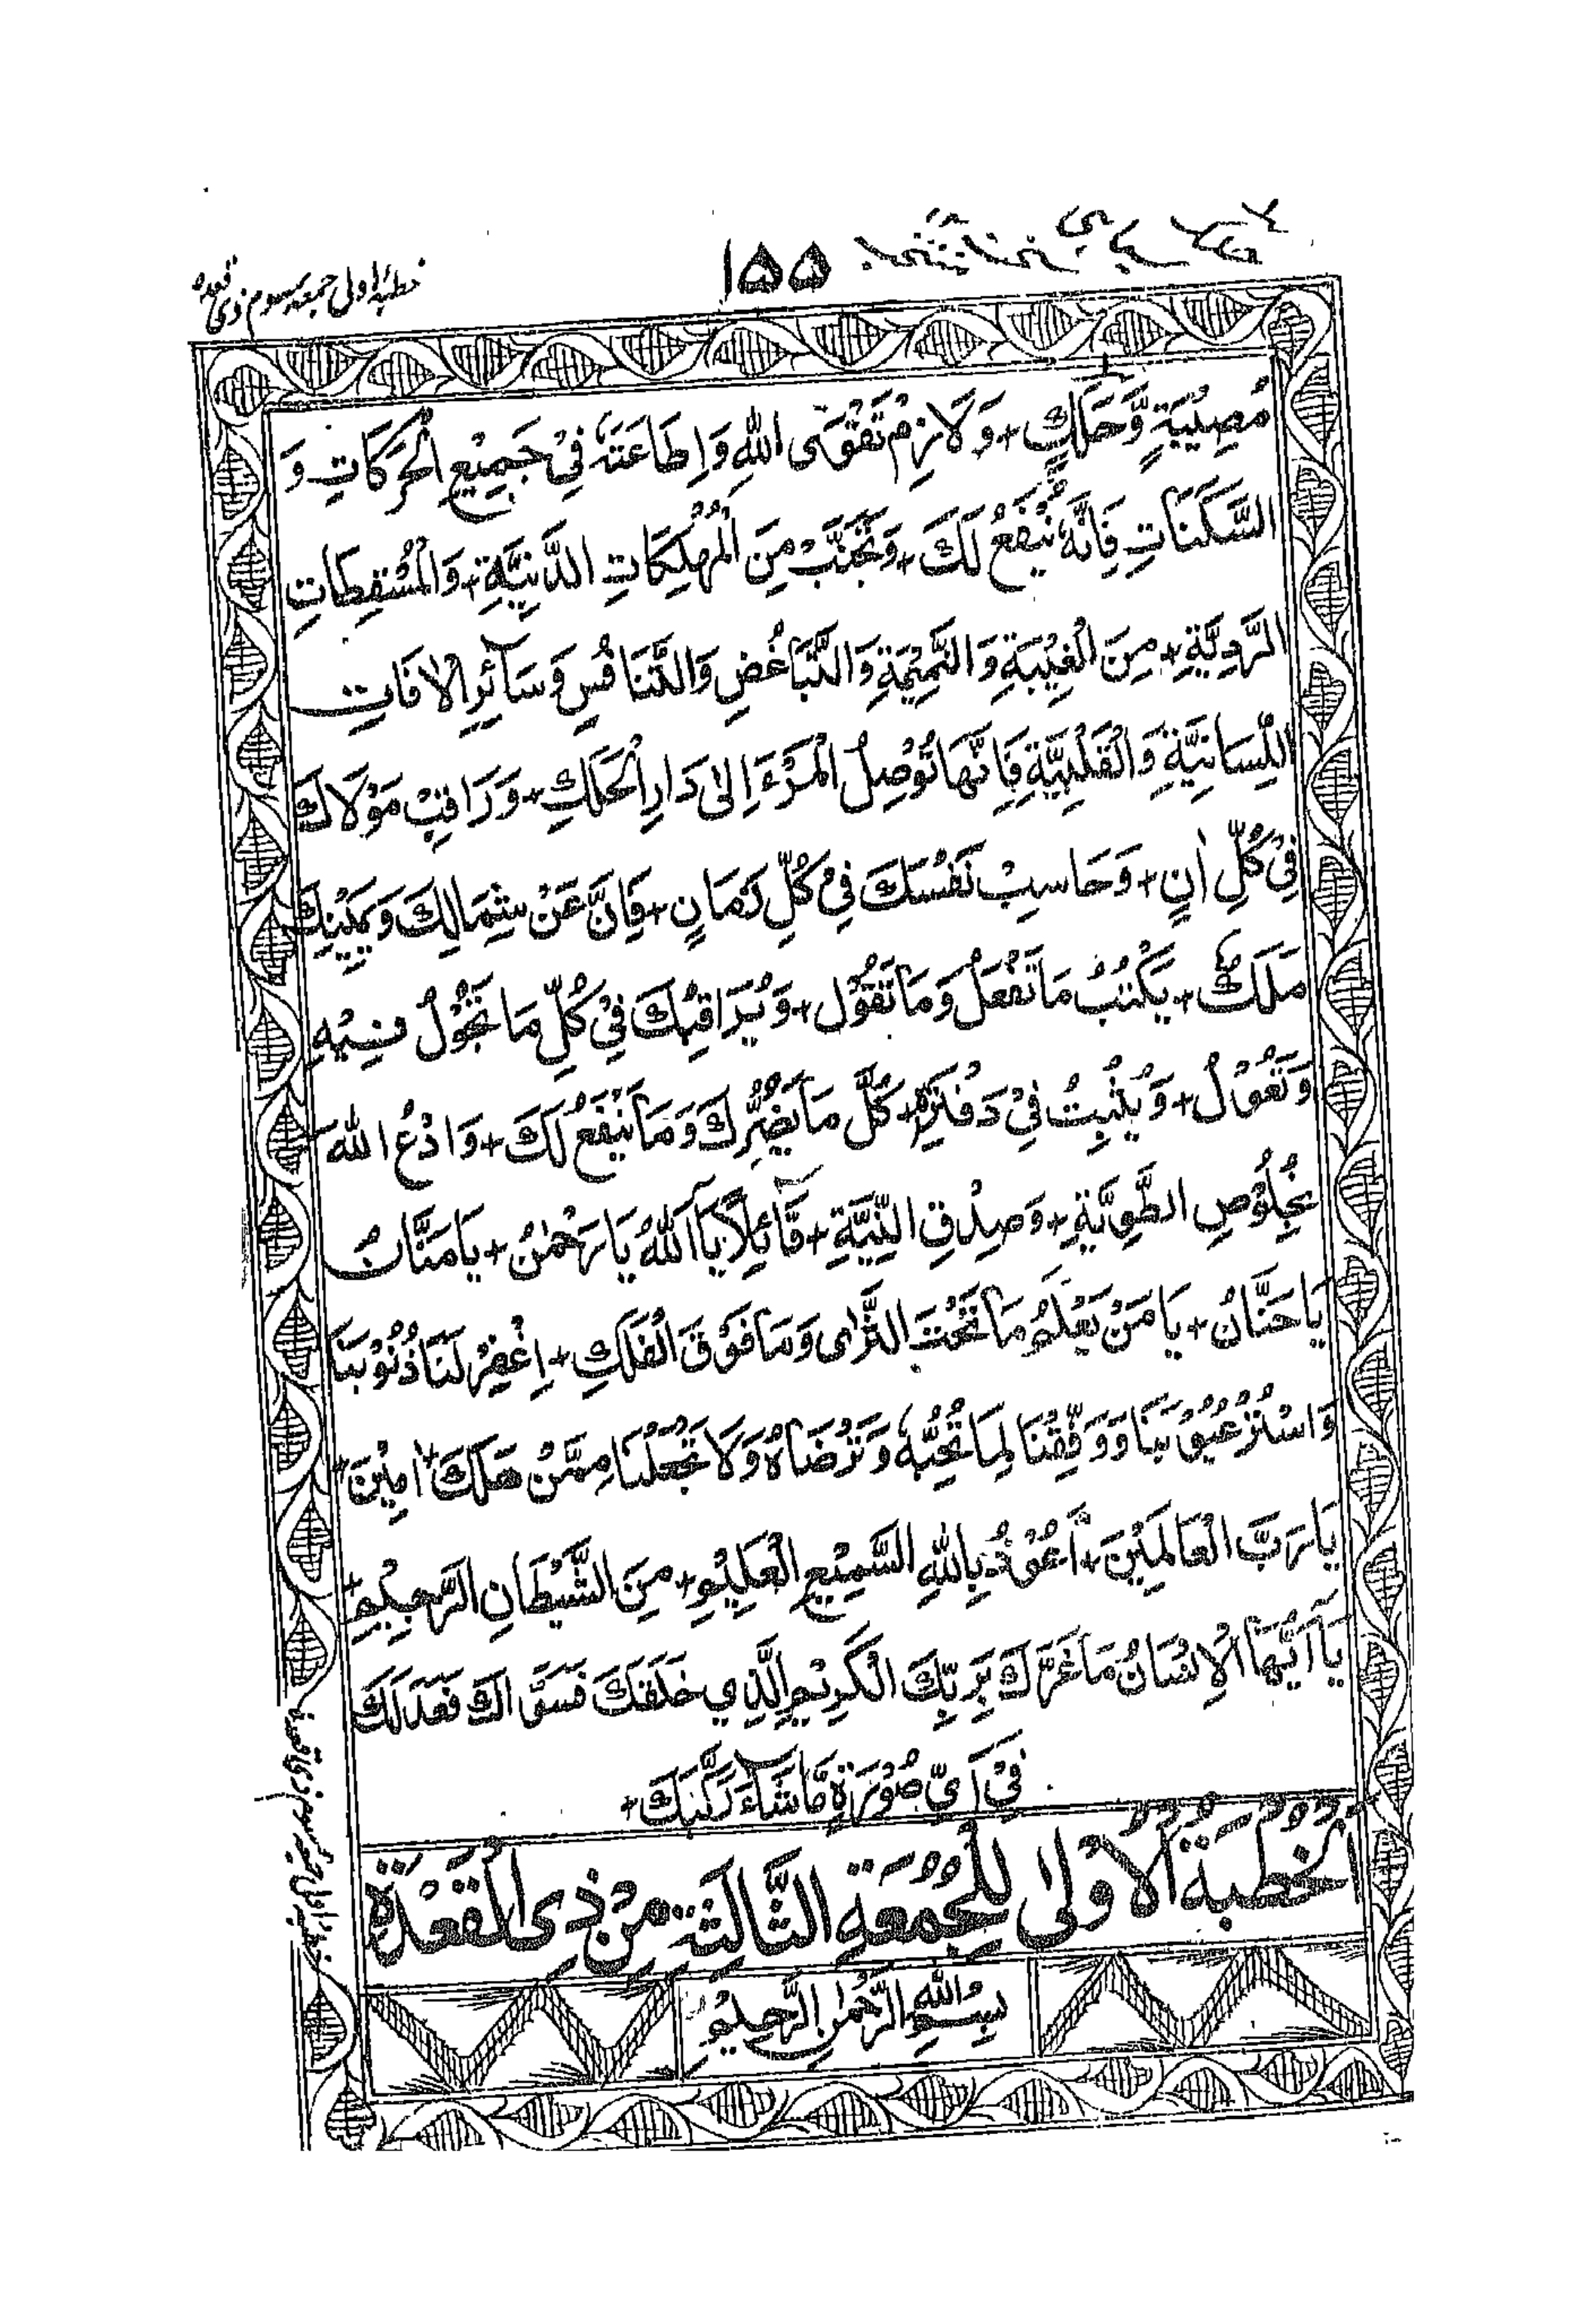 خطبهٔ اولی جمعه سوم ذی قعده
١٥٥
مُصِيْبَةٍ وَّحَلَكٍ + وَلَازِمْ تَقْوَى اللّٰهِ وَاِطَاعَتَهٗ فِيْ جَمِيْعِ الْحَرَكَاتِ وَ
السَّكَنَاتِ فَاِنَّهٗ يَنْفَعُ لَكَ + وَتَجَنَّبْ مِنَ الْمُهْلِكَاتِ الدَّنِيَّةِ + وَالْمُسْقِطَاتِ
الرَّدِيَّةِ + مِنَ الْغِيْبَةِ وَالنَّمِيْمَةِ وَالتَّبَاغُضِ وَالتَّنَافُسِ وَسَآئِرِ الْاٰفَاتِ
اللِّسَانِيَّةِ وَالْقَلْبِيَّةِ فَاِنَّهَا تُوْصِلُ الْمَرْءَ اِلىٰ دَارِ الْحَلَكِ + وَرَاقِبْ مَوْلَاكَ
فِيْ كُلِّ اٰنٍ + وَحَاسِبْ نَفْسَكَ فِيْ كُلِّ زَمَانٍ + فَاِنَّ عَنْ شِمَالِكَ وَيَمِيْنِكَ
مَلَكٌ + يَكْتُبُ مَا تَفْعَلُ وَمَا تَقُوْلُ + وَيُرَاقِبُكَ فِيْ كُلِّ مَا تَجُوْلُ فِيْهِ
وَتَعُوْلُ + وَيُثْبِتُ فِيْ دَفْتَرِهٖ + كُلَّ مَا يَضُرُّكَ وَمَا يَنْفَعُ لَكَ + وَادْعُ اللّٰهَ
بِخُلُوْصِ الطَّوِيَّةِ + وَصِدْقِ النِّيَّةِ + قَآئِلًا يَا اَللّٰهُ يَا رَحْمٰنُ + يَا مَنَّانُ
يَا حَنَّانُ + يَا مَنْ يَعْلَمُ مَا تَحْتَ الثَّرٰى وَمَا فَوْقَ الْفَلَكِ + اِغْفِرْ لَنَا ذُنُوْبَنَا
وَاسْتُرْ عُيُوْبَنَا وَوَفِّقْنَا لِمَا تُحِبُّهٗ وَتَرْضَاهُ وَلَا تَجْعَلْنَا مِمَّنْ هَلَكَ + اٰمِيْنَ +
يَا رَبَّ الْعَالَمِيْنَ + اَعُوْذُ بِاللّٰهِ السَّمِيْعِ الْعَلِيْمِ + مِنَ الشَّيْطَانِ الرَّجِيْمِ +
يَآ اَيُّهَا الْاِنْسَانُ مَا غَرَّكَ بِرَبِّكَ الْكَرِيْمِ الَّذِي خَلَقَكَ فَسَوَّاكَ فَعَدَلَكَ
فِيْ اَيِّ صُوْرَةٍ مَّا شَآءَ رَكَّبَكَ +
اَلْخُطْبَةُ الْاُوْلىٰ لِلْجُمُعَةِ الثَّالِثَةِ مِنْ ذِي الْقَعْدَةِ
بِسْمِ اللّٰهِ الرَّحْمٰنِ الرَّحِيْمِ